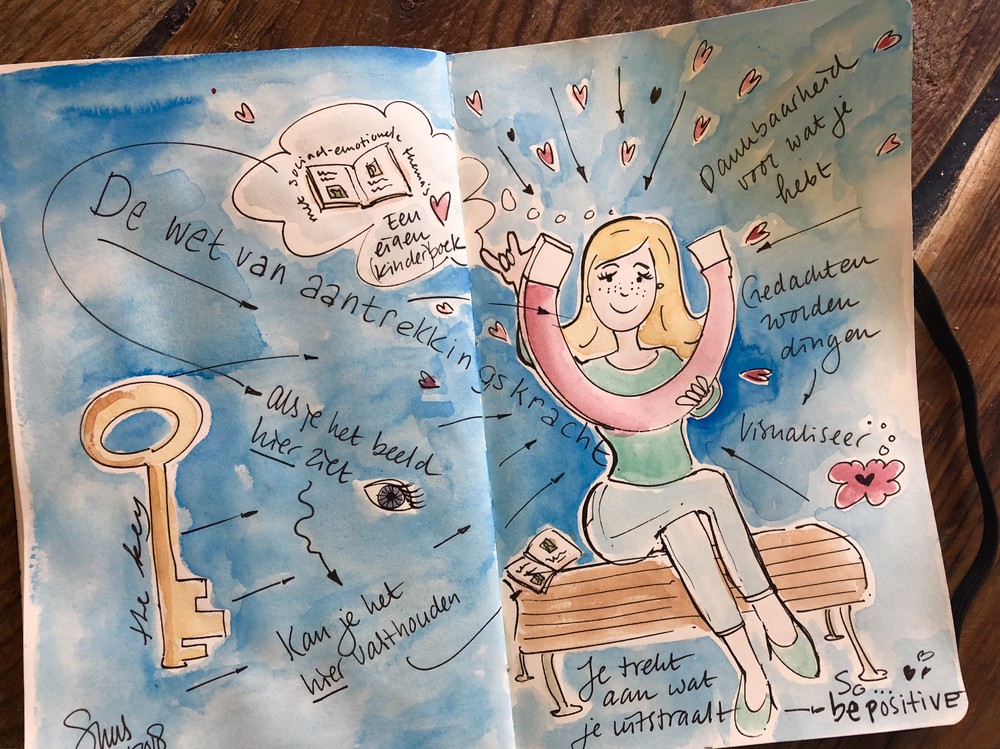 met sociaal-emotionele thema's
Een
eigen
kinderboek
De wet van aantrekkingskracht
als je het beeld
hier ziet
the key
Kan je het
hier vasthouden
Shus
2018
Dankbaarheid
voor wat je
hebt
Gedachten
worden
dingen
Visualiseer
Je trekt
aan wat
je uitstraalt
So...
be positive